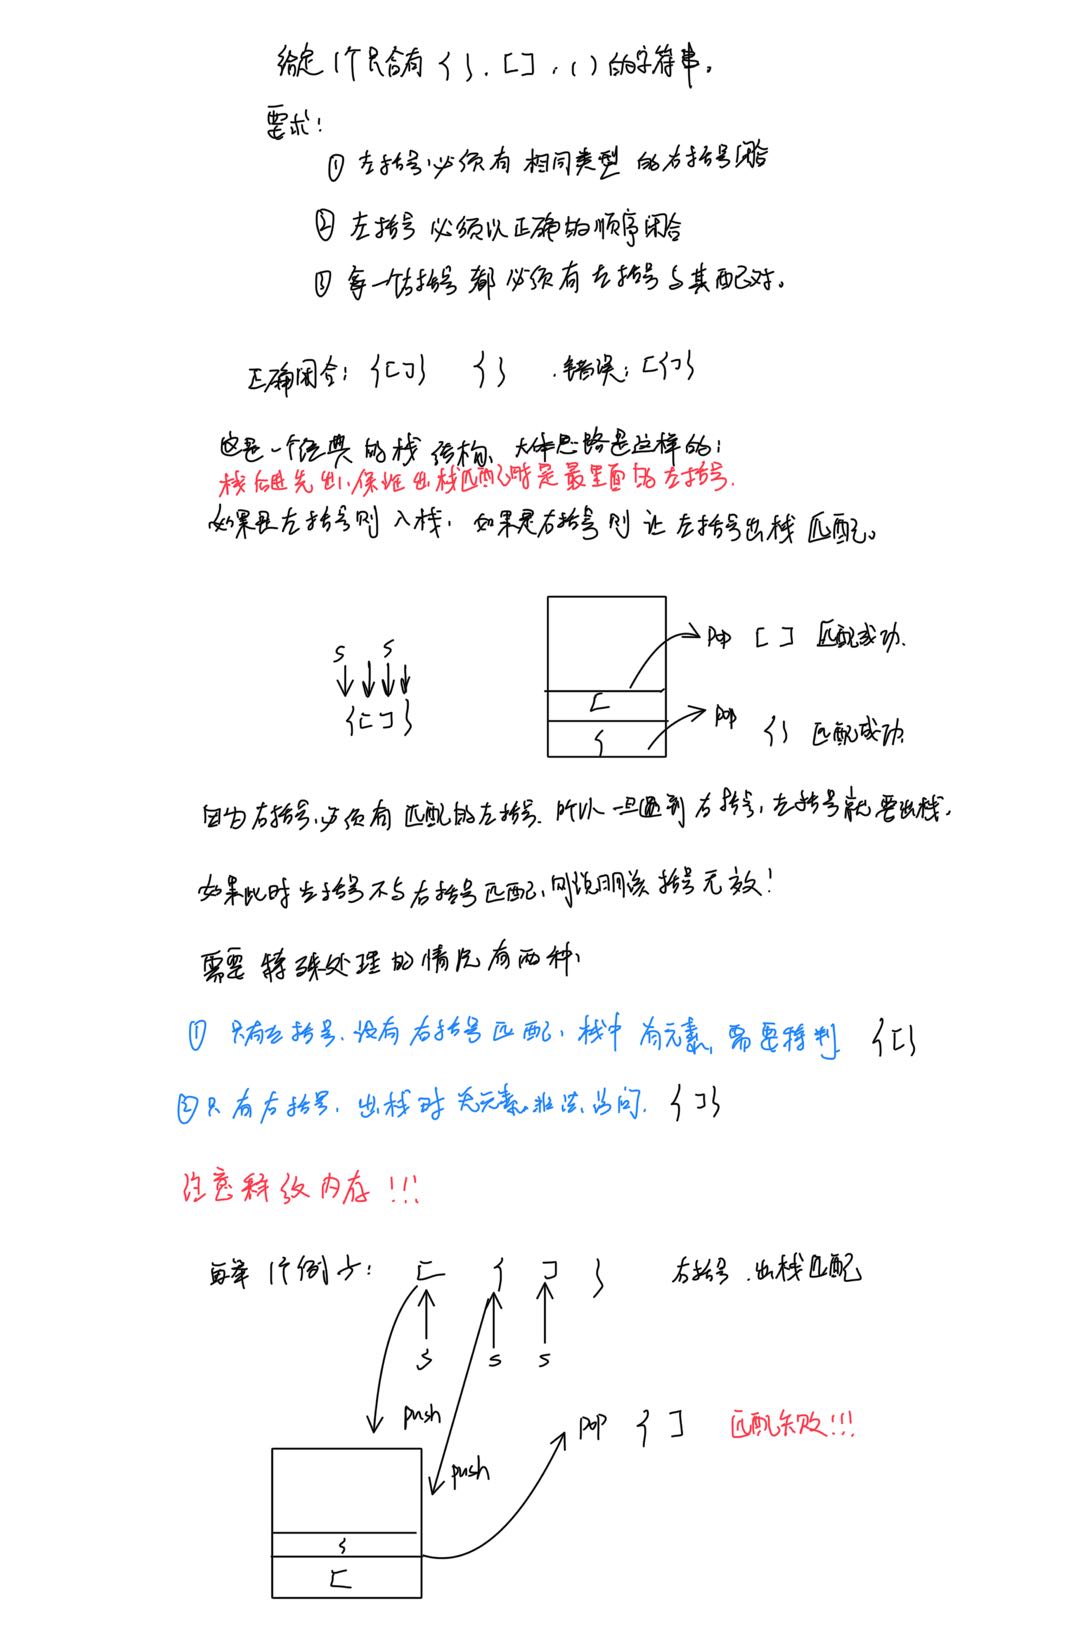 给定1个只含有 { }, [ ], ( ) 的字符串。
要求:
① 左括号必须有相同类型的右括号闭合
② 左括号必须以正确的顺序闭合
③ 每一个右括号都必须有左括号与其配对。
正确闭合: {[]} {} .错误: [{]}
这是一个经典的栈结构、大体思路是这样的:
栈后进先出,保证出栈匹配时是最里面的左括号.
如果是左括号则入栈, 如果是右括号则让左括号出栈匹配。
s s
{[]}
[
{
pop [ ] 匹配成功.
pop {} 匹配成功.
因为右括号必须有匹配的左括号.所以一旦遇到右括号,左括号就要出栈.
如果此时左括号不与右括号匹配,则说明该括号无效!
需要特殊处理的情况有两种,
① 只有左括号.没有右括号匹配,栈中有元素,需要特判. {[}
② 只有右括号,出栈时无元素.非法访问. {]}
注意释放内存!!!
再举1个例子: [ { ] } 右括号.出栈匹配
s s s
push
push
pop { ] 匹配失败!!!
{
[